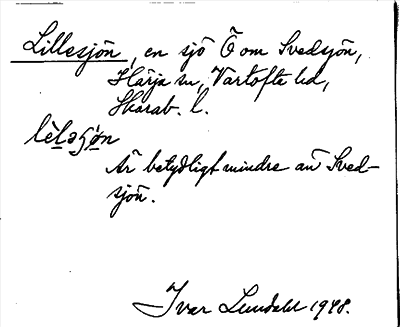 Lillesjön, en sjö Ö om Svedsjön,
Härja sn, Vartofta hd,
Skarab. l.
lìlaʂø̀n
Är betydligt mindre än Sved-
sjön.
Ivar Lundahl 1948.